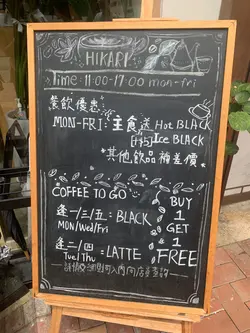 HIKARI
Time: 11:00-17:00 mon-fri
業飲優惠:
MON-FRI: 主食送 Hot BLACK
Ice BLACK
*其他飲品補差價*
COFFEE TO GO
逢一/三/五: BLACK
MON/Wed/Fri
逢二/四 = LATTE
Tue/Thu
BUY
1
GET
1
FREE